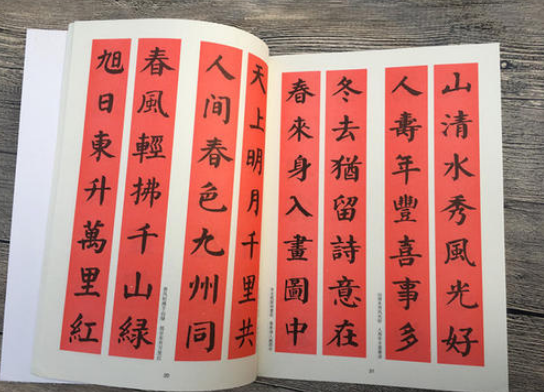 山清水秀風光好
人壽年豐喜事多
冬去猶留詩意在
春來身入畫圖中
天上明月千里共
人間春色九州同
春風輕拂千山緑
旭日東升萬里紅